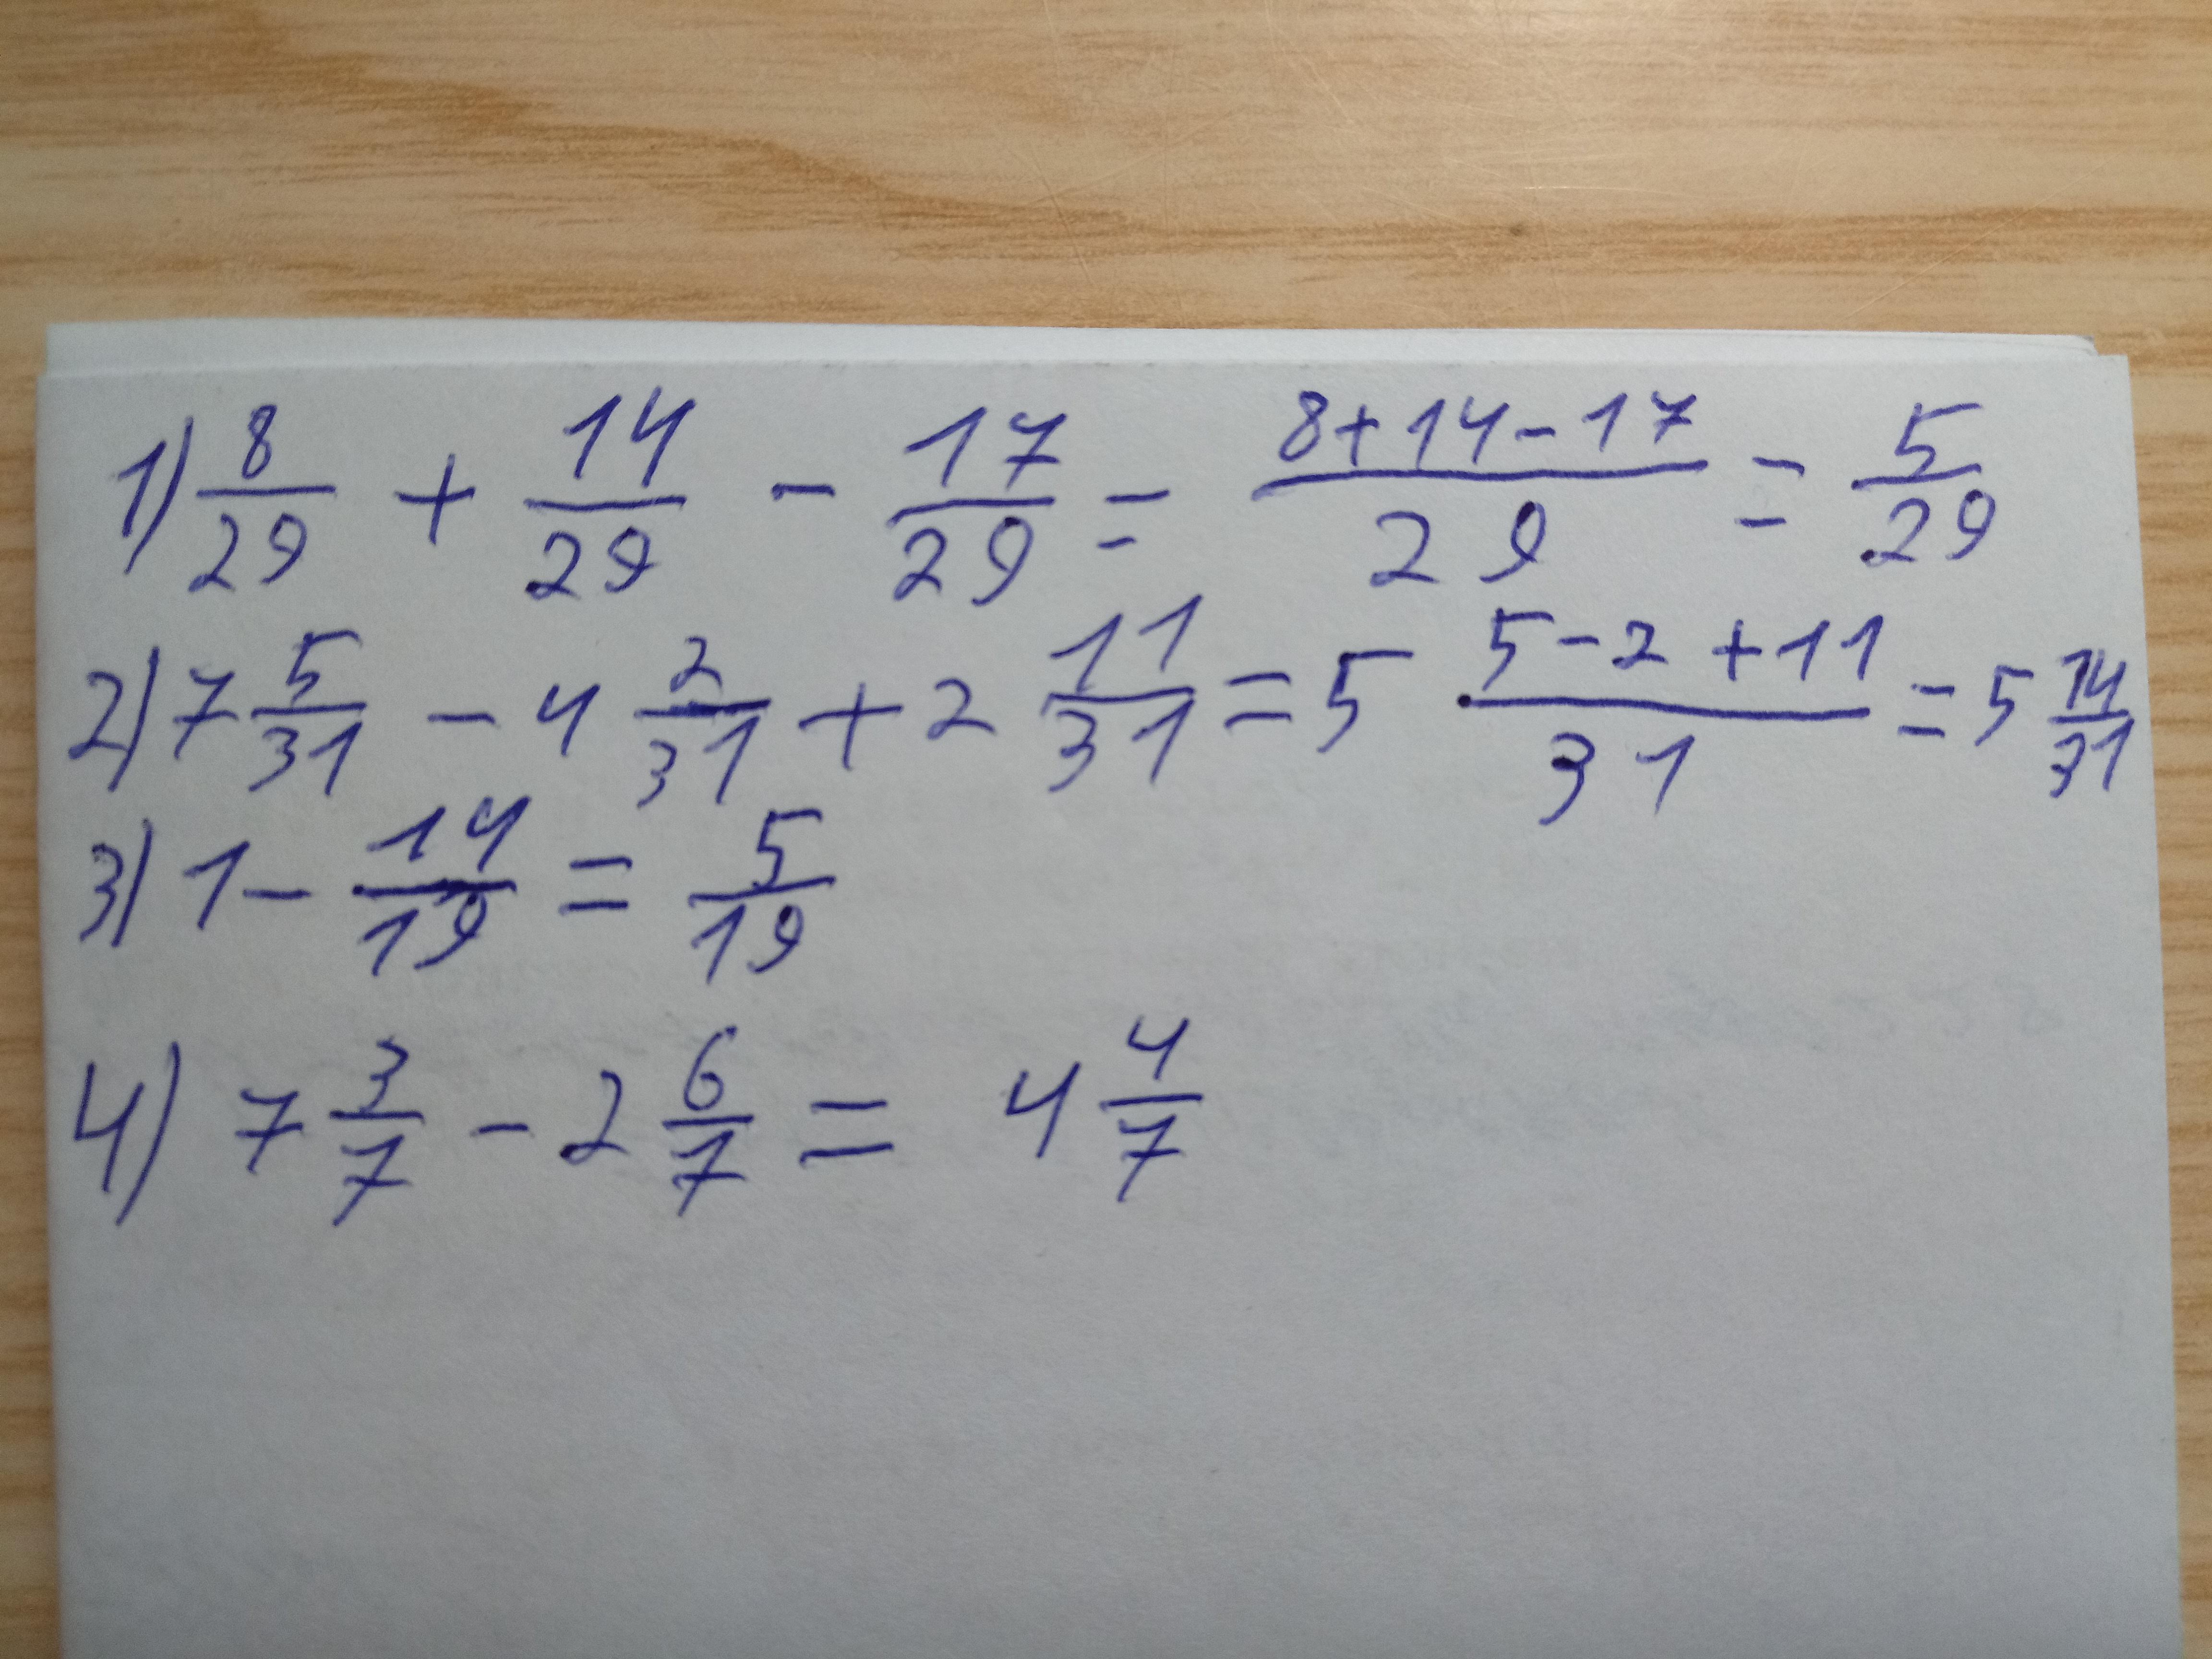 1) 8/29 + 14/29 - 17/29 = (8+14-17)/29 = 5/29
2) 7 5/31 - 4 2/31 + 2 11/31 = 5 (5-2+11)/31 = 5 14/31
3) 1 - 14/19 = 5/19
4) 7 3/7 - 2 6/7 = 4 4/7